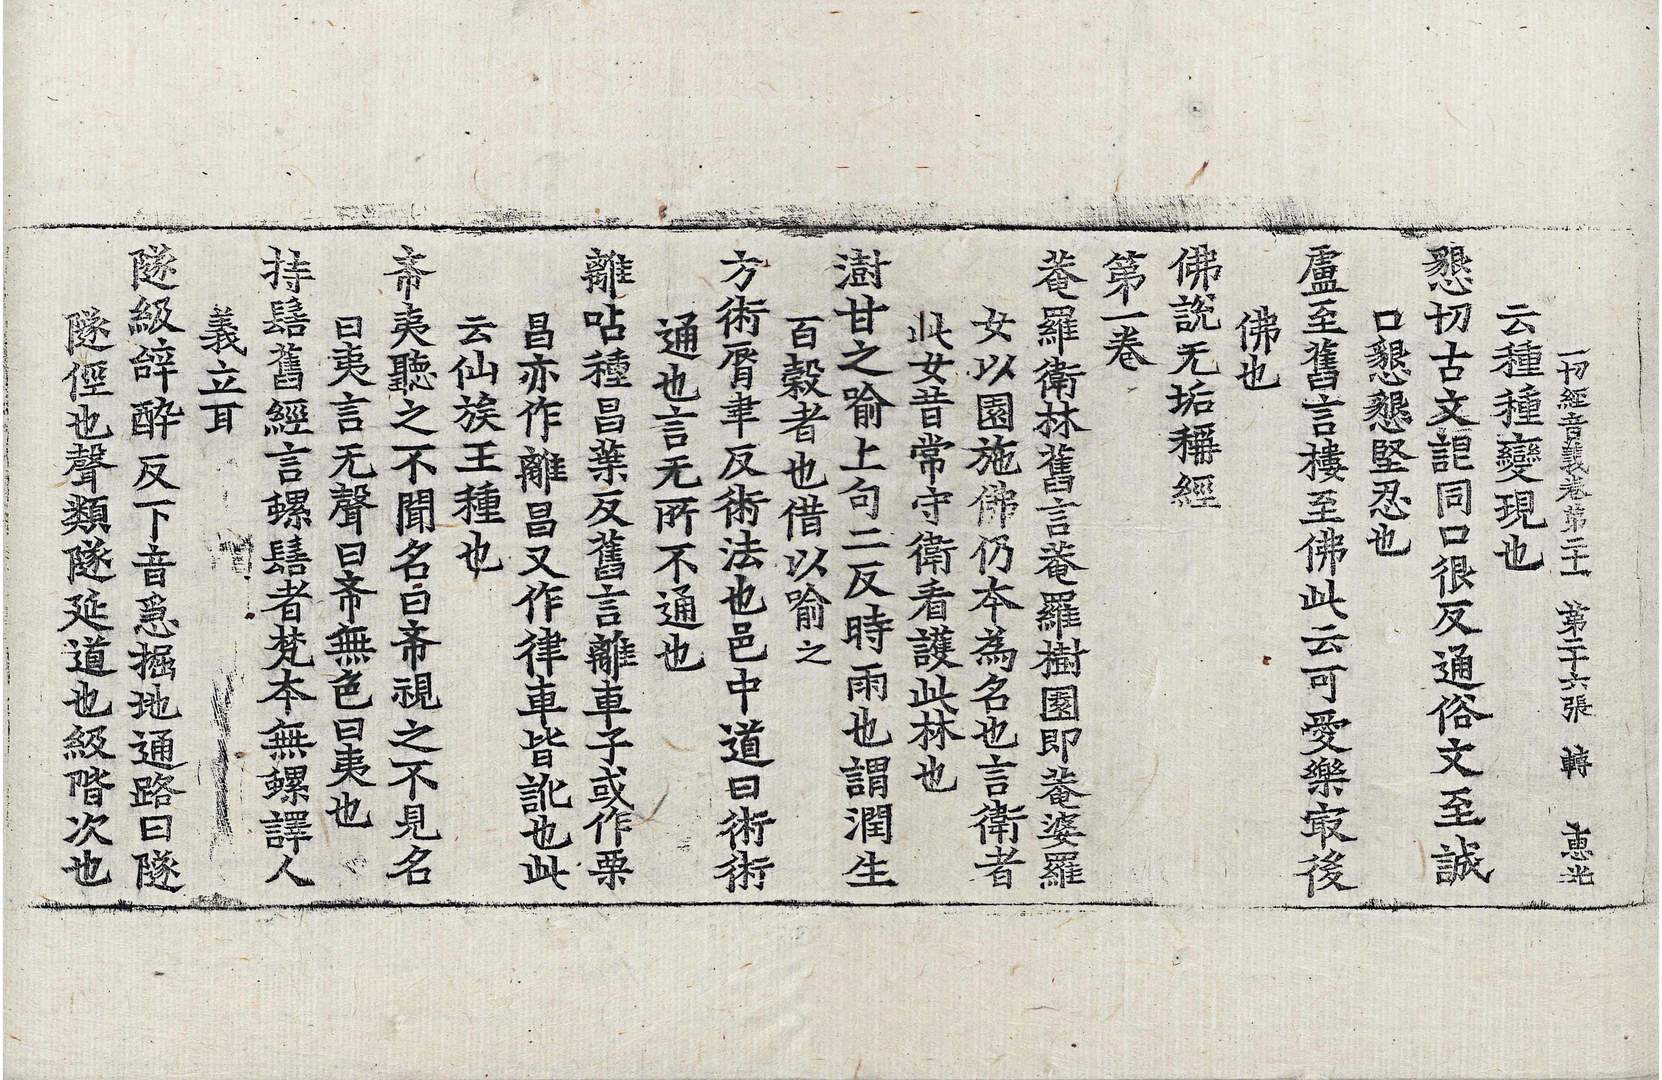 一切經音義卷第二十一 第二十六張 轉 惠光
云種種變現也
懇切古文詪同口很反通俗文至誠
口懇懇堅忍也
盧至舊言樓至佛此云可愛樂冣後
佛也
佛說无垢稱經
第一卷
菴羅衛林舊言菴羅樹園即菴婆羅
女以園施佛仍本為名也言衛者
此女昔常守衛看護此林也
澍甘之喻上句二反時雨也謂潤生
百穀者也借以喻之
方術脣聿反術法也邑中道曰術術
通也言无所不通也
離呫種昌葉反舊言離車子或作栗
昌亦作離昌又作律車皆訛也此
云仙族王種也
帝夷聽之不聞名曰帝視之不見名
曰夷言无聲曰帝無色曰夷也
持髻舊經言螺髻者梵本無螺譯人
義立耳
隧級辝酔反下音急掘地通路曰隧
隧俓也聲類隧延道也級階次也